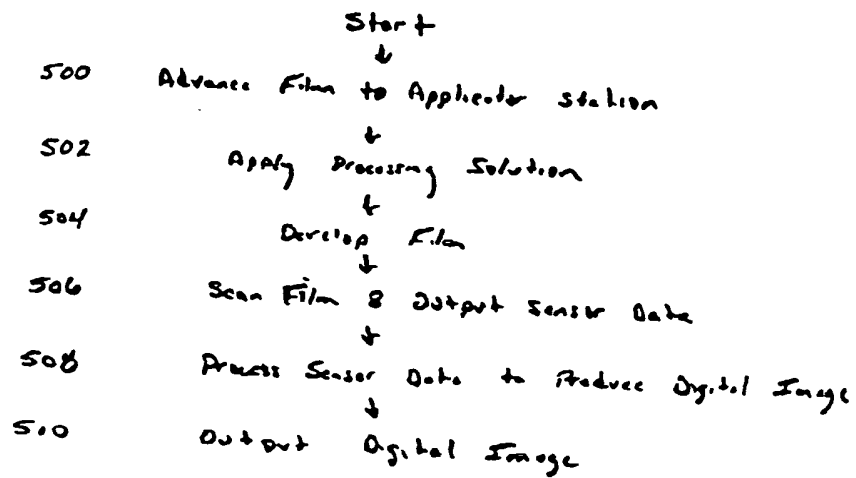 Start
500 Advance Film to Applicator Station
502 Apply Processing Solution
504 Develop Film
506 Scan Film & Output Sensor Data
508 Process Sensor Data to Produce Digital Image
510 Output Digital Image